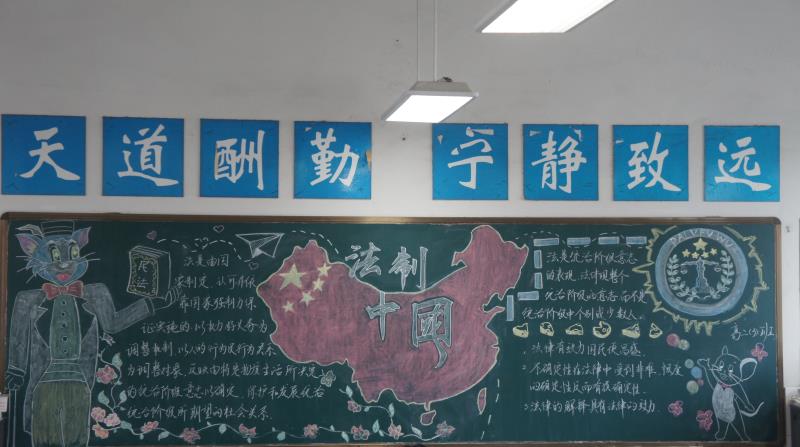 天道酬勤 宁静致远
法制
中國
民法
法是由国
家制定、认可并依
靠国家强制力保
证实施的,以权力的义务为
调整机制,以人的行为及行为关系
为调整对象,反映由特定物质生活所决定
的统治阶级意志以确定、保护和发展
统治阶级所期望的社会关系.
法是统治阶级意志
的表现,法体现整个
统治阶级的意志而不是
统治阶级中个别或少数人.
高二(9)班
法律有效力国民便昌盛.
个确定性在法律中受到非难,极度
的确定性反而有损确定性.
法律的解释具有法律的效力